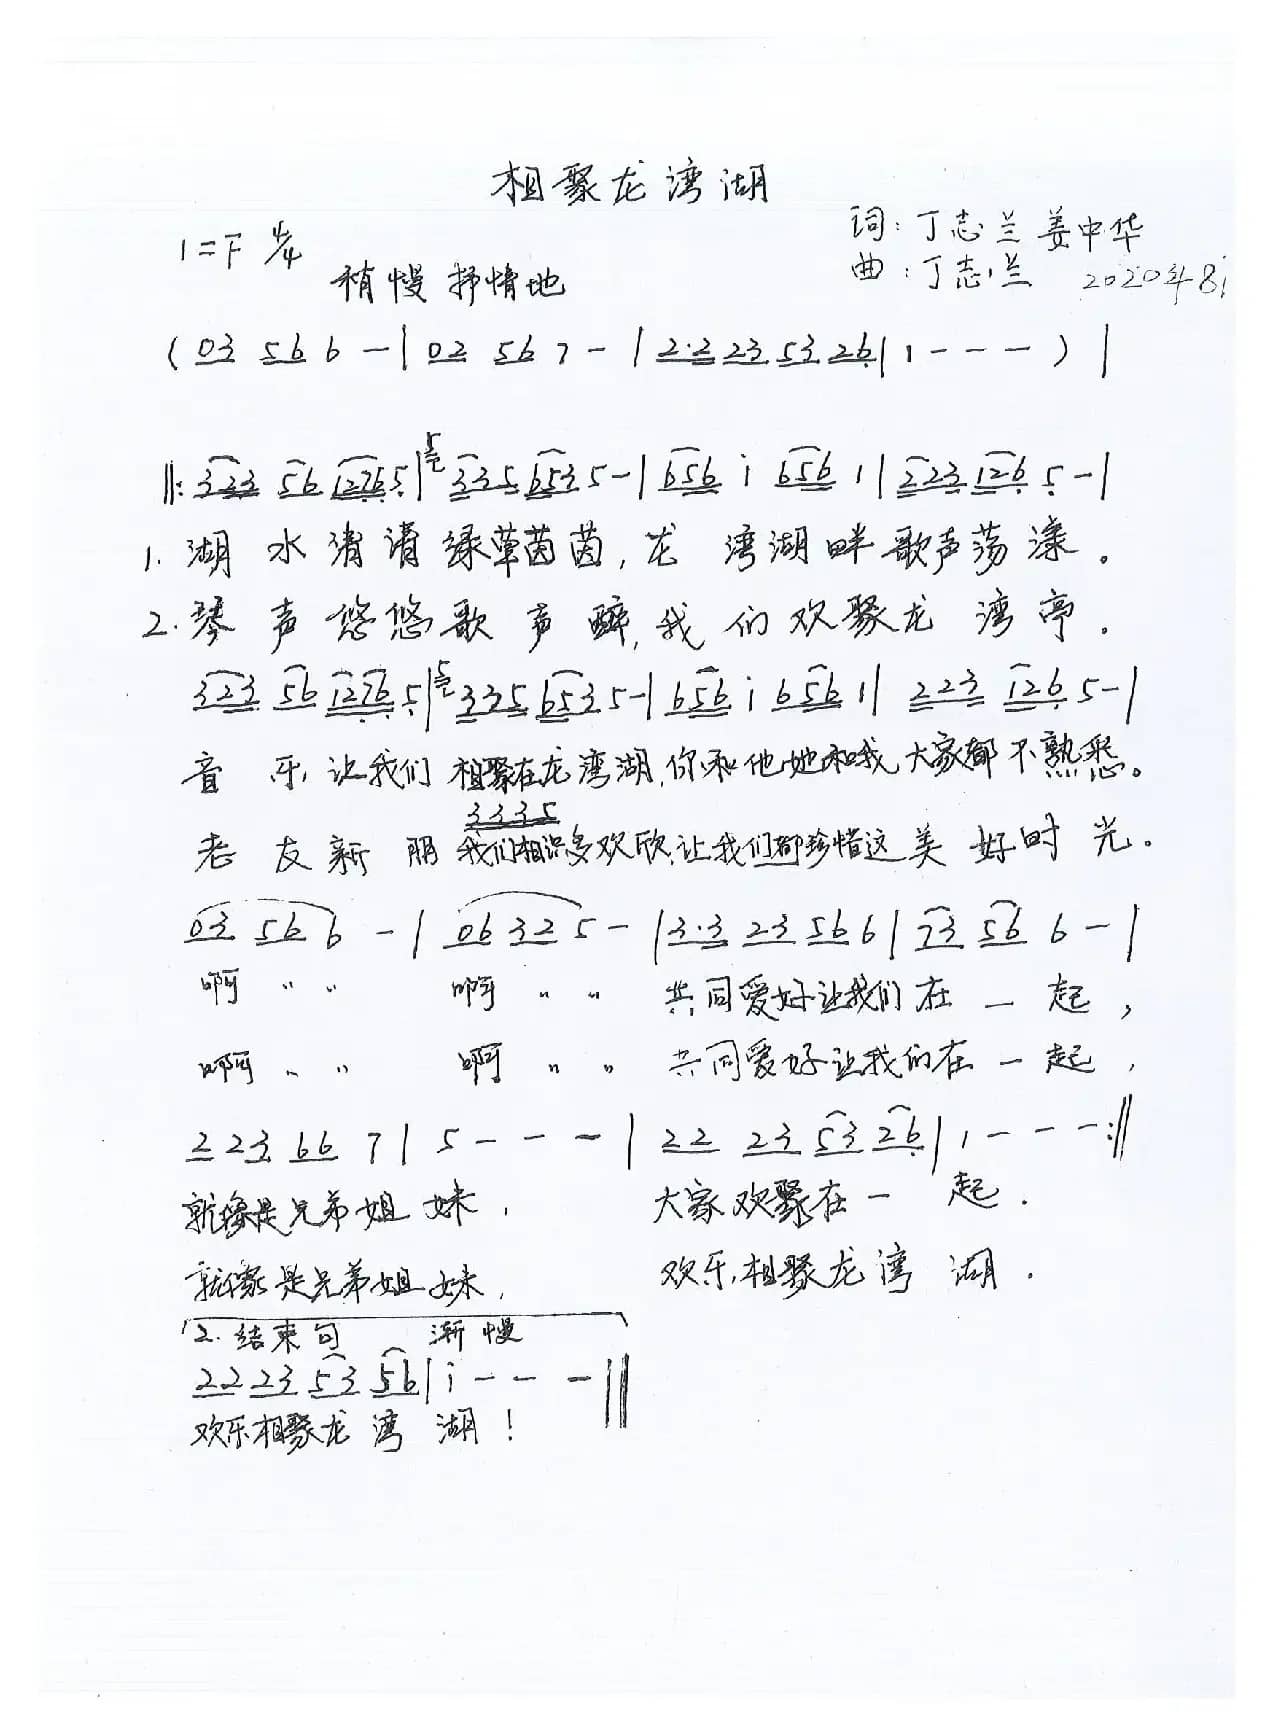 相聚龙湾湖
1=F 4/4
词:丁志兰 姜中华
稍慢 抒情地
曲:丁志兰 2020年8
(03 56 6 -|02 56 7 -|2·2 23 53 26|1 - - - )|
‖:323 56 1276 5|5 335 653 5-|656 i 656 1|223 126 5-|
1. 湖水清清绿草茵茵,龙湾湖畔歌声荡漾。
2. 琴声悠悠歌声醉,我们欢聚龙湾亭.
323 56 1276 5|5 335 653 5-|656 i 656 1|223 126 5-|
音乐让我们相聚在龙湾湖,你和他她和我大家都不熟悉。
3335
老友新朋我们相识多欢欣,让我们都珍惜这美好时光。
03 56 6 -|06 32 5 -|3·3 23 56 6|73 56 6 -|
啊 " " 啊 " " 共同爱好让我们在一起,
啊 " " 啊 " " 共同爱好让我们在一起,
2 23 66 7|5 - - -|22 23 53 26|1 - - -:‖
就像是兄弟姐妹, 大家欢聚在一起.
就像是兄弟姐妹, 欢乐相聚龙湾湖.
2. 结束句 渐慢
22 23 53 56|i - - -‖
欢乐相聚龙湾湖!